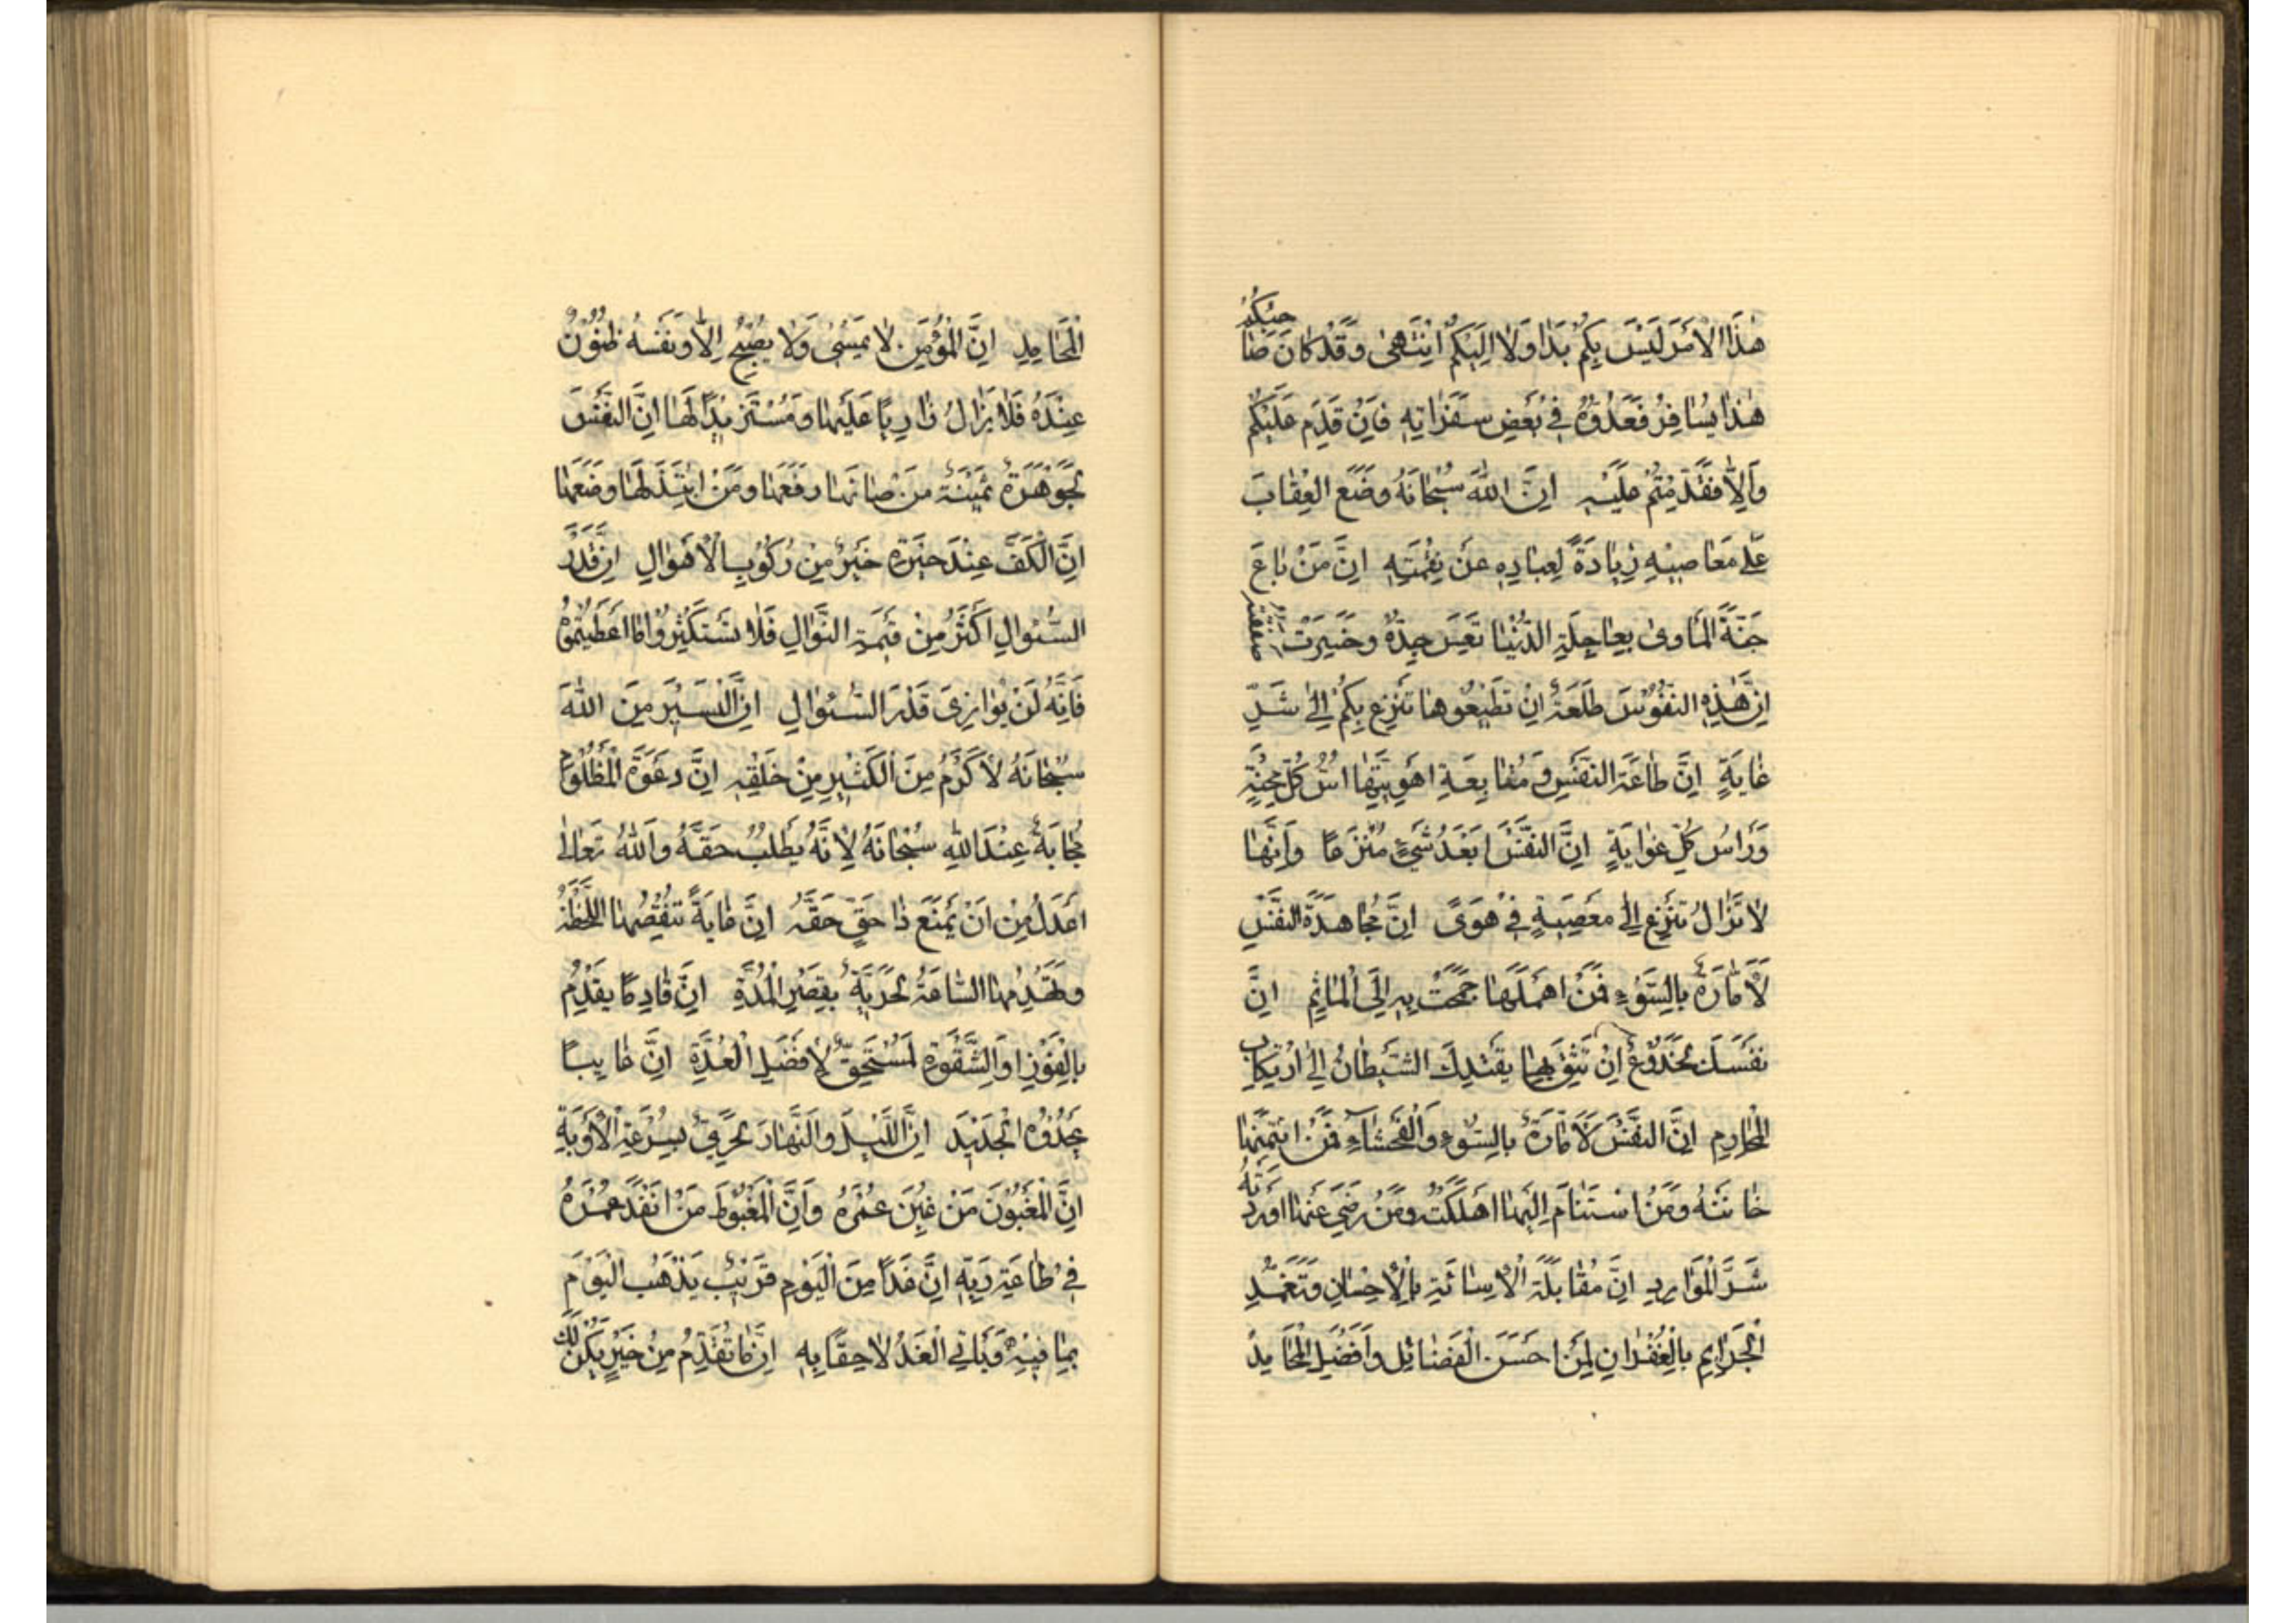 هٰذَا الْاَمْرَ لَيْسَ بِكُمْ بَدَا وَلَا اِلَيْكُمْ اِنْتَهىٰ وَقَدْ كَانَ صَاحِبُكُمْ
هٰذَا يُسَافِرُ فَعَدُّوهُ فِي بَعْضِ سَفَرَاتِهِ فَاِنْ قَدِمَ عَلَيْكُمْ
وَاِلَّا فَقَدِمْتُمْ عَلَيْهِ اِنَّ اللّٰهَ سُبْحَانَهُ وَضَعَ الْعِقَابَ
عَلىٰ مَعَاصِيهِ زِيَادَةً لِعِبَادِهِ عَنْ نِقْمَتِهِ اِنَّ مَنْ بَاعَ
جَنَّةَ الْمَأْوىٰ بِعَاجِلَةِ الدُّنْيَا تَعِسَ جِدُّهُ وَخَسِرَتْ صَفْقَتُهُ
اِنَّ هٰذِهِ النُّفُوسَ طُلَعَةٌ اِنْ تُطِيعُوهَا تَنْزِعْ بِكُمْ اِلىٰ شَرِّ
غَايَةٍ اِنَّ طَاعَةَ النَّفْسِ وَمُتَابِعَةِ اَهْوِيَتِهَا اُسُّ كُلِّ مِحْنَةٍ
وَرَاْسُ كُلِّ غَوَايَةٍ اِنَّ النَّفْسَ اَبْعَدُ شَيْءٍ مَنْزَعًا وَاِنَّهَا
لَا تَزَالُ تَنْزِعُ اِلىٰ مَعْصِيَةٍ فِي هَوىً اِنَّ مُجَاهَدَةَ النَّفْسِ
لَاَمَّارَةٌ بِالسُّوْءِ فَمَنْ اَهْمَلَهَا جَمَحَتْ بِهِ اِلَى الْمَاٰثِمِ اِنَّ
نَفْسَكَ لَخَدُوعٌ اِنْ تَثِقْ بِهَا يَقْتَدِكَ الشَّيْطَانُ اِلىٰ ارْتِكَابِ
الْمَحَارِمِ اِنَّ النَّفْسَ لَاَمَّارَةٌ بِالسُّوْءِ وَالْفَحْشَاءِ فَمَنِ ائْتَمَنَهَا
خَانَتْهُ وَمَنِ اسْتَنَامَ اِلَيْهَا اَهْلَكَتْهُ وَمَنْ رَضِيَ عَنْهَا اَوْرَدَتْهُ
شَرَّ الْمَوَارِدِ اِنَّ مُقَابَلَةَ الْاِسَائَةِ بِالْاِحْسَانِ وَتَغَمُّدِ
الْجَرَايِمِ بِالْغُفْرَانِ لَمِنْ اَحْسَنِ الْفَضَائِلِ وَاَفْضَلِ الْمَحَامِدِ
الْمَحَامِدِ اِنَّ الْمُؤْمِنَ لَا يُمْسِيْ وَلَا يُصْبِحُ اِلَّا وَنَفْسُهُ ظَنُونٌ
عِنْدَهُ فَلَا يَزَالُ زَارِيًا عَلَيْهَا وَمُسْتَزِيْدًا لَهَا اِنَّ النَّفْسَ
لَجَوْهَرَةٌ ثَمِينَةٌ مَنْ صَانَهَا رَفَعَهَا وَمَنِ ابْتَذَلَهَا وَضَعَهَا
اِنَّ الْكَفَّ عِنْدَ حَيْرَةِ خَيْرٌ مِنْ رُكُوبِ الْاَهْوَالِ اِنَّ قَدْرَ
السُّئوَالِ اَكْثَرُ مِنْ قِيمَةِ النَّوَالِ فَلَا تَسْتَكْثِرُوا مَا اَعْطَيْتُمُوهُ
فَاِنَّهُ لَنْ يُوَازِيَ قَدْرَ السُّئوَالِ اِنَّ الْيَسِيْرَ مِنَ اللّٰهِ
سُبْحَانَهُ لَاَكْرَمُ مِنَ الْكَثِيرِ مِنْ خَلْقِهِ اِنَّ دَعْوَةَ الْمَظْلُومِ
مُجَابَةٌ عِنْدَ اللّٰهِ سُبْحَانَهُ لِاَنَّهُ يَطْلُبُ حَقَّهُ وَاللّٰهُ تَعَالىٰ
اَعْدَلُ مِنْ اَنْ يَمْنَعَ ذَا حَقٍّ حَقَّهُ اِنَّ غَايَةً تَنْقُصُهَا اللَّحْظَةُ
وَتَهْدِمُهَا السَّاعَةُ لَحَرِيَّةٌ بِقِصَرِ الْمُدَّةِ اِنَّ قَادِمًا يَقْدِمُ
بِالْفَوْزِ اَوِ الشَّقْوَةِ لَمُسْتَحِقٌّ لِاَفْضَلِ الْعُدَّةِ اِنَّ غَايِبًا
يَحْدُوهُ الْجَدِيدَ اِنَّ اللَّيْلَ وَالنَّهَارَ لَحَرِيٌّ بِسُرْعَةِ الْاَوْبَةِ
اِنَّ الْمَغْبُونَ مَنْ غُبِنَ عُمْرَهُ وَاِنَّ الْمَغْبُوطَ مَنْ اَنْفَدَ عُمْرَهُ
فِي طَاعَةِ رَبِّهِ اِنَّ غَدًا مِنَ الْيَوْمِ قَرِيْبٌ يَذْهَبُ الْيَوْمَ
بِمَا فِيْهِ وَيَاتِي الْغَدُ لَاحِقًا بِهِ اِنَّ مَا تُقَدِّمُ مِنْ خَيْرٍ يَكُنْ لَكَ